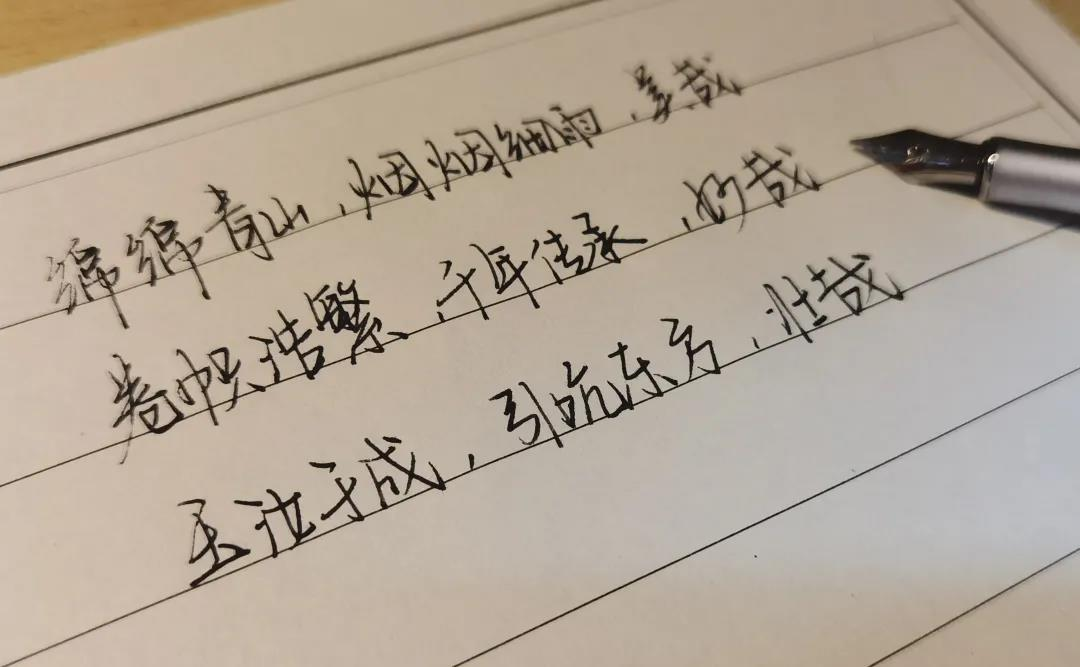 绵绵青山，烟烟细雨，美哉
卷帙浩繁，千年传承，妙哉
玉汝于成，引吭东方，壮哉